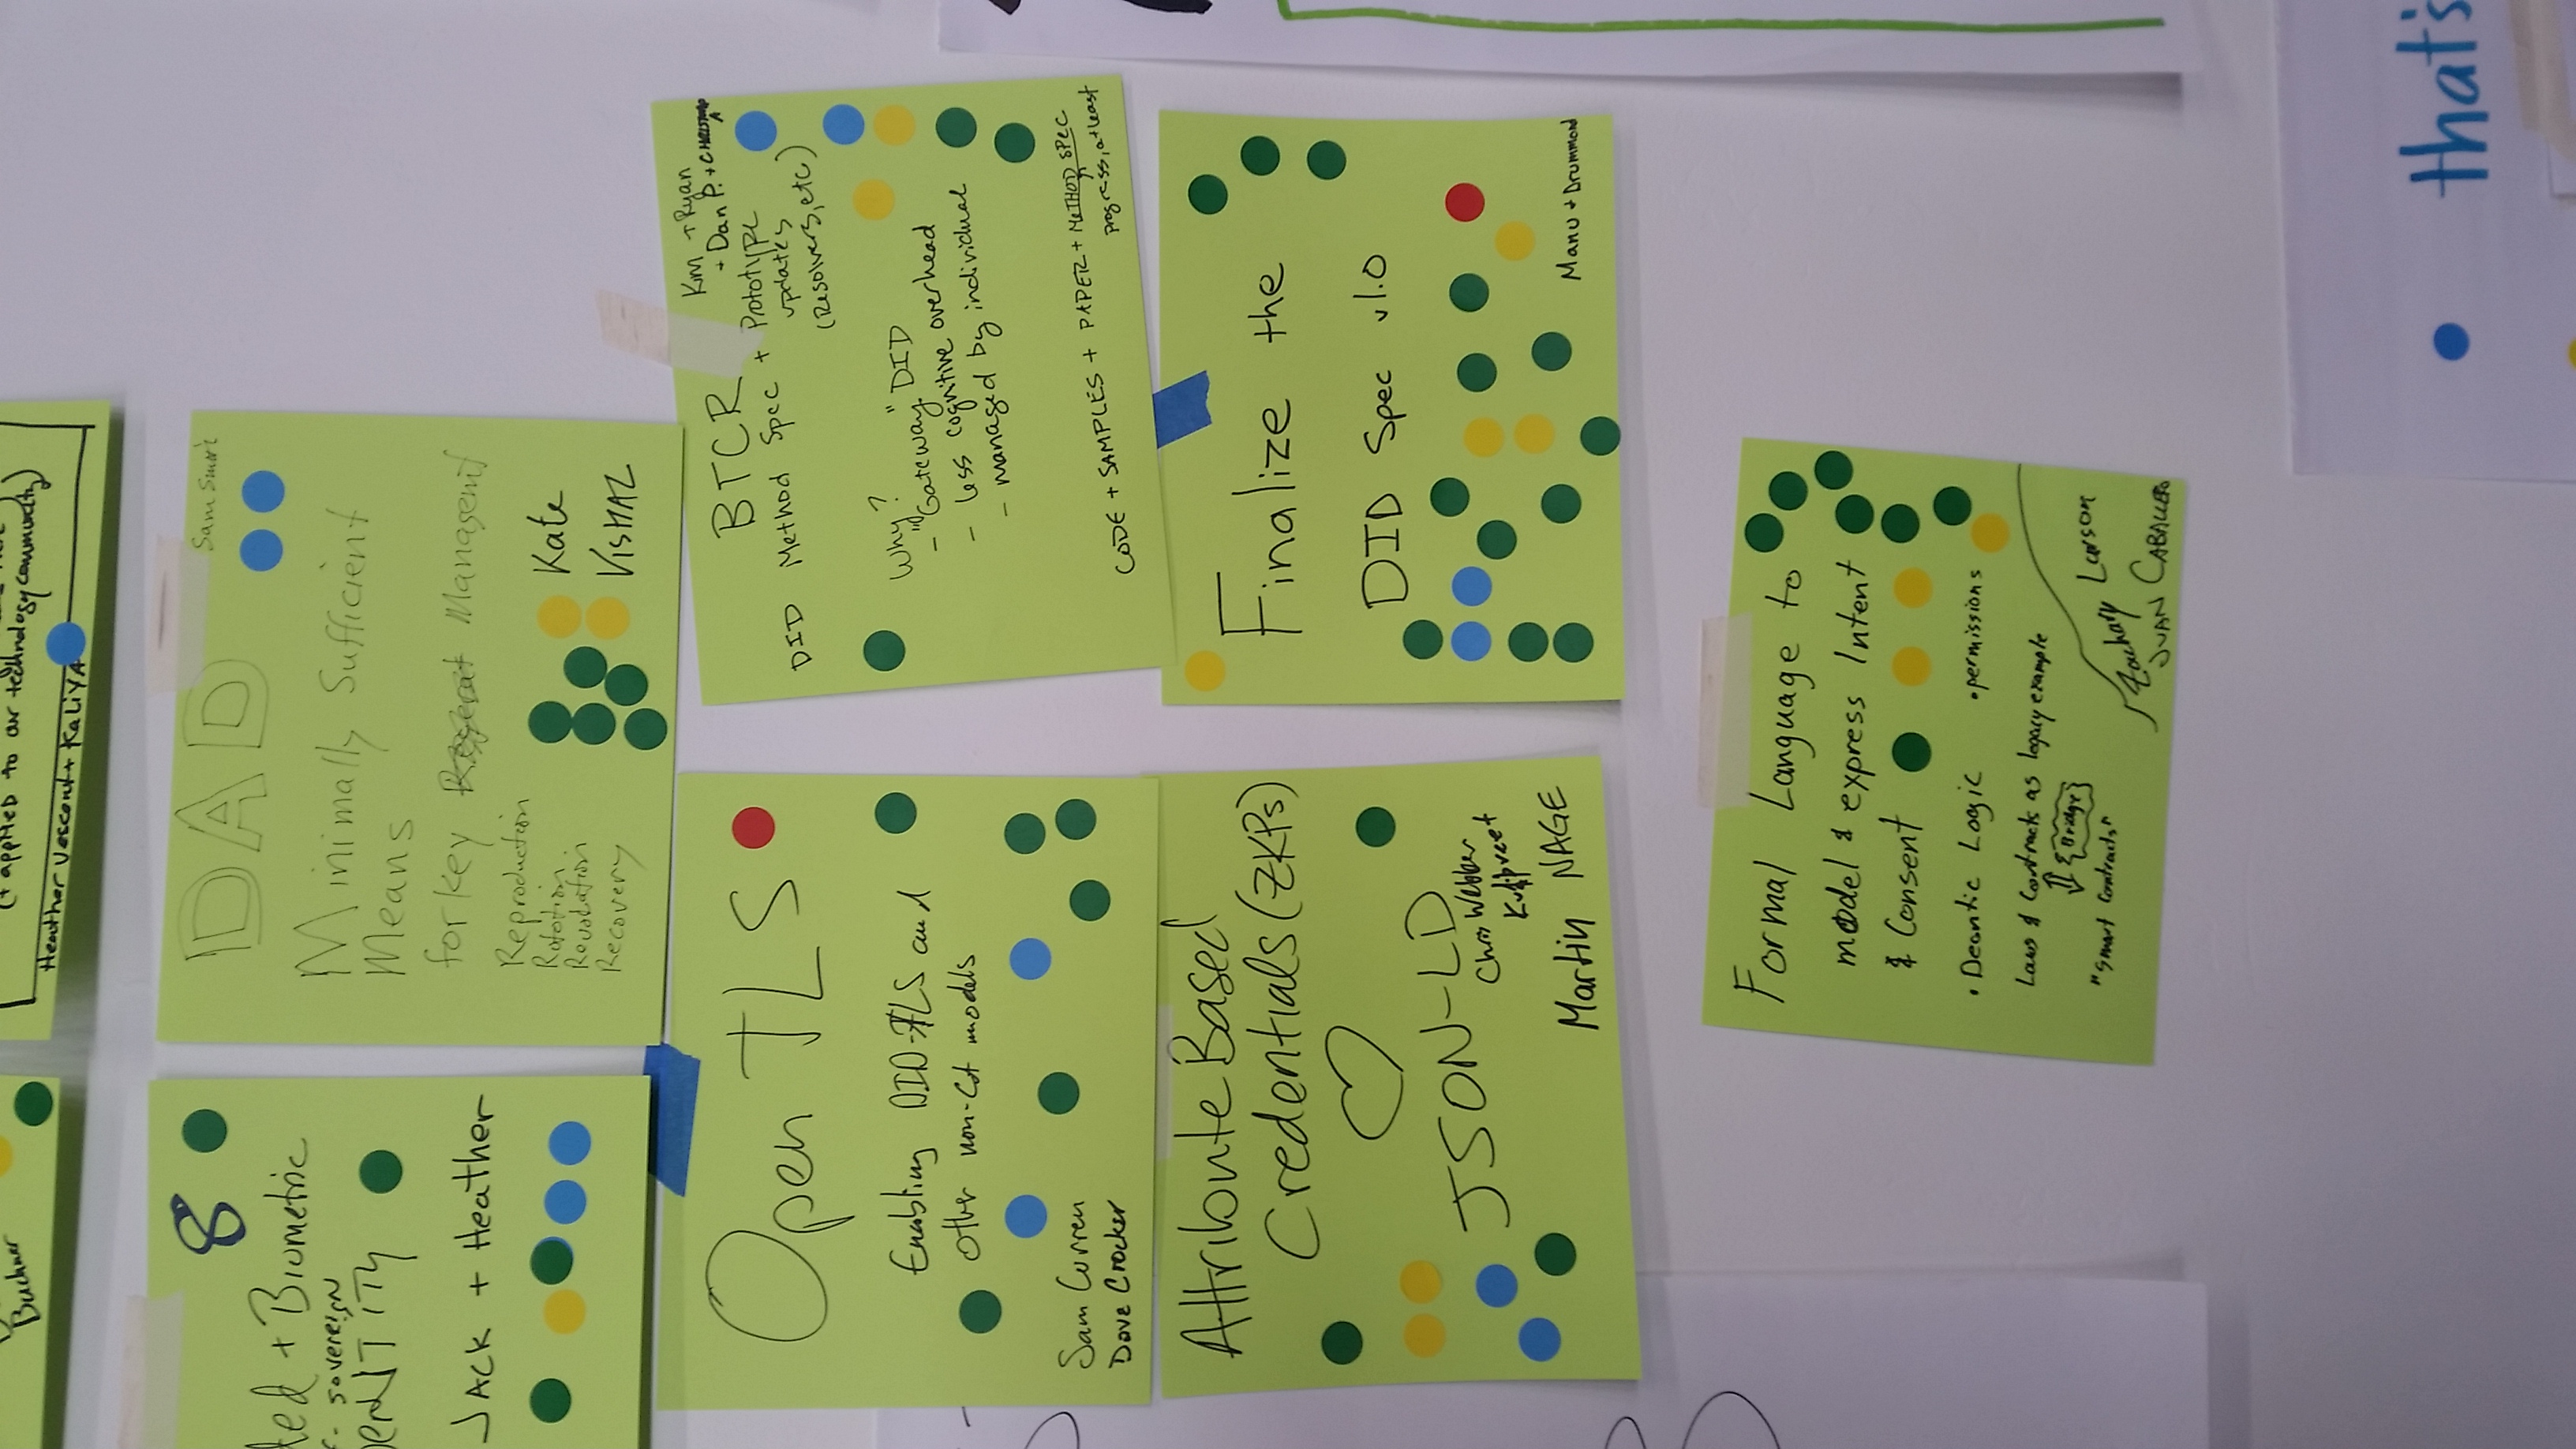 Buchner
(+ applied to our technology community)
Heather Vescent + KALIYA
8
ted + Biometric
f- sovereign
DENTITY
JACK + Heather
DAD
Sam Smit
Minimally Sufficient
Means
for key Managemt
Reproduction
Rotation
Revocation
Recovery
Kate
VISHAL
Open TLS
Enabling DID-TLS and
other non-CA models
Sam Curren
Dave Crocker
Kim + Ryan
+ Dan P. + CHRISTOPHER
A
BTCR
DID Method Spec + Prototype
updates
(Resolvers, etc)
Why?
- "Gateway" DID
- less cognitive overhead
- managed by individual
CODE + SAMPLES + PAPER + METHOD SPEC
progress, at least
Attribute Based
Credentials (ZKPs)
JSON-LD
Chris Webber
Kulpreet
Martin NAGE
Finalize the
DID Spec v1.0
Manu + Drummond
Formal Language to
model & express Intent
& Consent
• Deontic Logic • permissions
Laws & Contracts as legacy example
Bridge
"Smart Contracts"
Zachary Larson
JUAN CABALLERO
that's